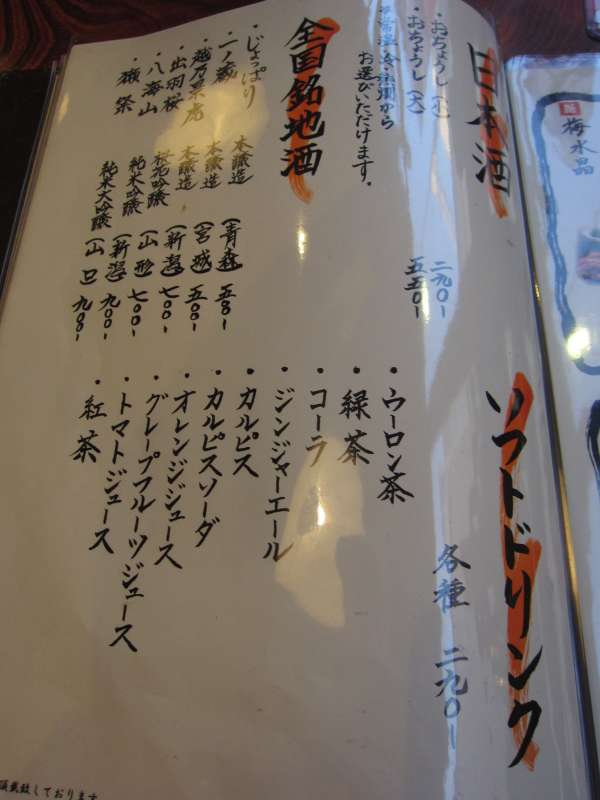 日本酒
・おちょうし(小) 二九〇-
・おちょうし(大) 五五〇-
お選びいただけます。
全国銘地酒
・じょっぱり 本醸造 (青森)
・一ノ蔵 本醸造 (宮城) 五〇〇-
・越乃景虎 本醸造 (新潟) 七〇〇-
・出羽桜 桜花吟醸 (山形) 七〇〇-
・八海山 純米吟醸 (新潟) 九〇〇-
・獺祭 純米大吟醸 (山口) 九〇〇-
ソフトドリンク
各種 二九〇-
・ウーロン茶
・緑茶
・コーラ
・ジンジャーエール
・カルピス
・カルピスソーダ
・オレンジジュース
・グレープフルーツジュース
・トマトジュース
・紅茶
頂戴致しております
梅水晶